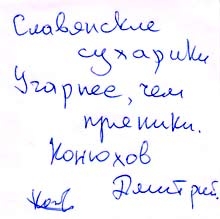 Славянские
сухарики
Угарнее, чем
пряники.
Конюхов
Дмитрий.